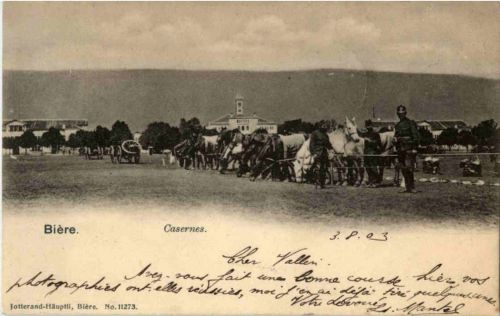 Bière.
Casernes.
3. 8. 03
Cher Vallen:
Avez-vous fait une bonne course hier, vos
photographies ont-elles réussies, moi j'en ai déjà tiré quelquesunes
Votre dévoué
Jotterand-Häuptli, Bière. No. 11273.